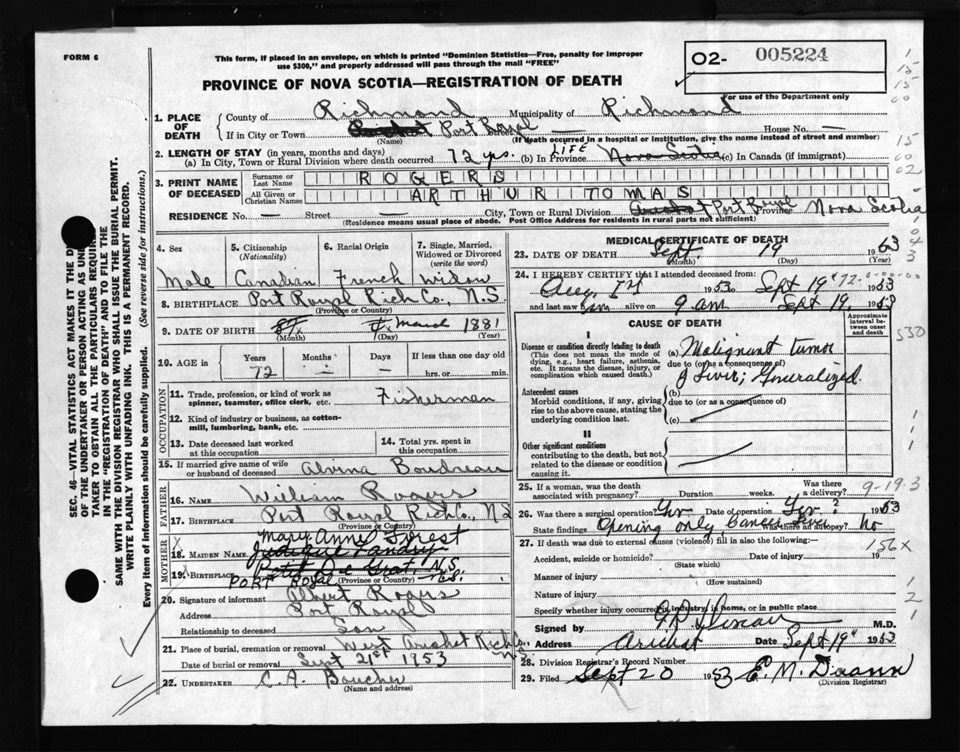 FORM 6
This form, if placed in an envelope, on which is printed "Dominion Statistics—Free, penalty for improper
use $300," and properly addressed will pass through the mail "FREE"
O2- 005224
For use of the Department only
PROVINCE OF NOVA SCOTIA—REGISTRATION OF DEATH
1. PLACE OF DEATH
County of Richmond Municipality of Richmond
If in City or Town Port Royal Street — House No. —
(Name) (If death occurred in a hospital or institution, give the name instead of street and number)
2. LENGTH OF STAY (in years, months and days)
(a) In City, Town or Rural Division where death occurred 72 yrs. (b) In Province LIFE Nova Scotia (c) In Canada (if immigrant)
3. PRINT NAME OF DECEASED
Surname or Last Name ROGERS
All Given or Christian Names ARTHUR TOMAS
RESIDENCE No. — Street — City, Town or Rural Division Port Royal Province Nova Scotia
(Residence means usual place of abode. Post Office Address for residents in rural parts not sufficient)
4. Sex
Male
5. Citizenship
(Nationality)
Canadian
6. Racial Origin
French
7. Single, Married,
Widowed or Divorced
(write the word)
Widow
8. BIRTHPLACE Port Royal Rich Co., N.S.
(Province or Country)
9. DATE OF BIRTH March 1881
(Month) (Day) (Year)
10. AGE in
Years Months Days If less than one day old
72 — — hrs. or min.
OCCUPATION
11. Trade, profession, or kind of work as
spinner, teamster, office clerk, etc. Fisherman
12. Kind of industry or business, as cotton-
mill, lumbering, bank, etc.
13. Date deceased last worked
at this occupation
14. Total yrs. spent in
this occupation
15. If married give name of wife
or husband of deceased Alvina Boudreau
FATHER
16. NAME William Rogers
17. BIRTHPLACE Port Royal Rich Co., N.S
(Province or Country)
MOTHER
Mary Anne Forest
18. MAIDEN NAME
19. BIRTHPLACE Petit De Grat, N.S.
PORT ROYAL (Province or Country) N.S.
20. Signature of informant Albert Rogers
Address Port Royal
Relationship to deceased Son
21. Place of burial, cremation or removal West Arichat Rich Co., N.S.
Date of burial or removal Sept 21st 1953
22. UNDERTAKER C.A.
(Name and address)
MEDICAL CERTIFICATE OF DEATH
23. DATE OF DEATH Sept. 19 1953
(Month) (Day)
24. I HEREBY CERTIFY that I attended deceased from
1953 to Sept 19th
and last saw him alive on 9 am Sept 19 1953
CAUSE OF DEATH
Approximate interval between onset and death
Disease or condition directly leading to death
(This does not mean the mode of
dying, e.g., heart failure, asthenia,
etc. It means the disease, injury, or
complication which caused death.)
(a) Malignant tumor
due to (or as a consequence of)
of liver; Generalized.
Antecedent causes
Morbid conditions, if any, giving
rise to the above cause, stating the
underlying condition last.
(b)
due to (or as a consequence of)
(c)
II
Other significant conditions
contributing to the death, but not
related to the disease or condition
causing it.
25. If a woman, was the death
associated with pregnancy? Duration weeks. Was there a delivery?
9-19-3
26. Was there a surgical operation? Date of operation 1953
State findings Opening only Cancer liver Was there an autopsy? no
27. If death was due to external causes (violence) fill in also the following:—
156x
Accident, suicide or homicide? Date of injury 19
(State which)
Manner of injury
(How sustained)
Nature of injury
Specify whether injury occurred in industry, in home, or in public place
Signed by M.D.
Address Arichat Date Sept 19th 1953
28. Division Registrar's Record Number
29. Filed Sept 20 1953 E. M. Doann
(Division Registrar)
SEC. 46—VITAL STATISTICS ACT MAKES IT THE DUTY
OF THE UNDERTAKER OR PERSON ACTING AS UNDER-
TAKER TO OBTAIN ALL THE PARTICULARS REQUIRED
IN THE "REGISTRATION OF DEATH" AND TO FILE THE
SAME WITH THE DIVISION REGISTRAR WHO SHALL ISSUE THE BURIAL PERMIT.
WRITE PLAINLY WITH UNFADING INK. THIS IS A PERMANENT RECORD.
Every item of information should be carefully supplied. (See reverse side for instructions.)
530